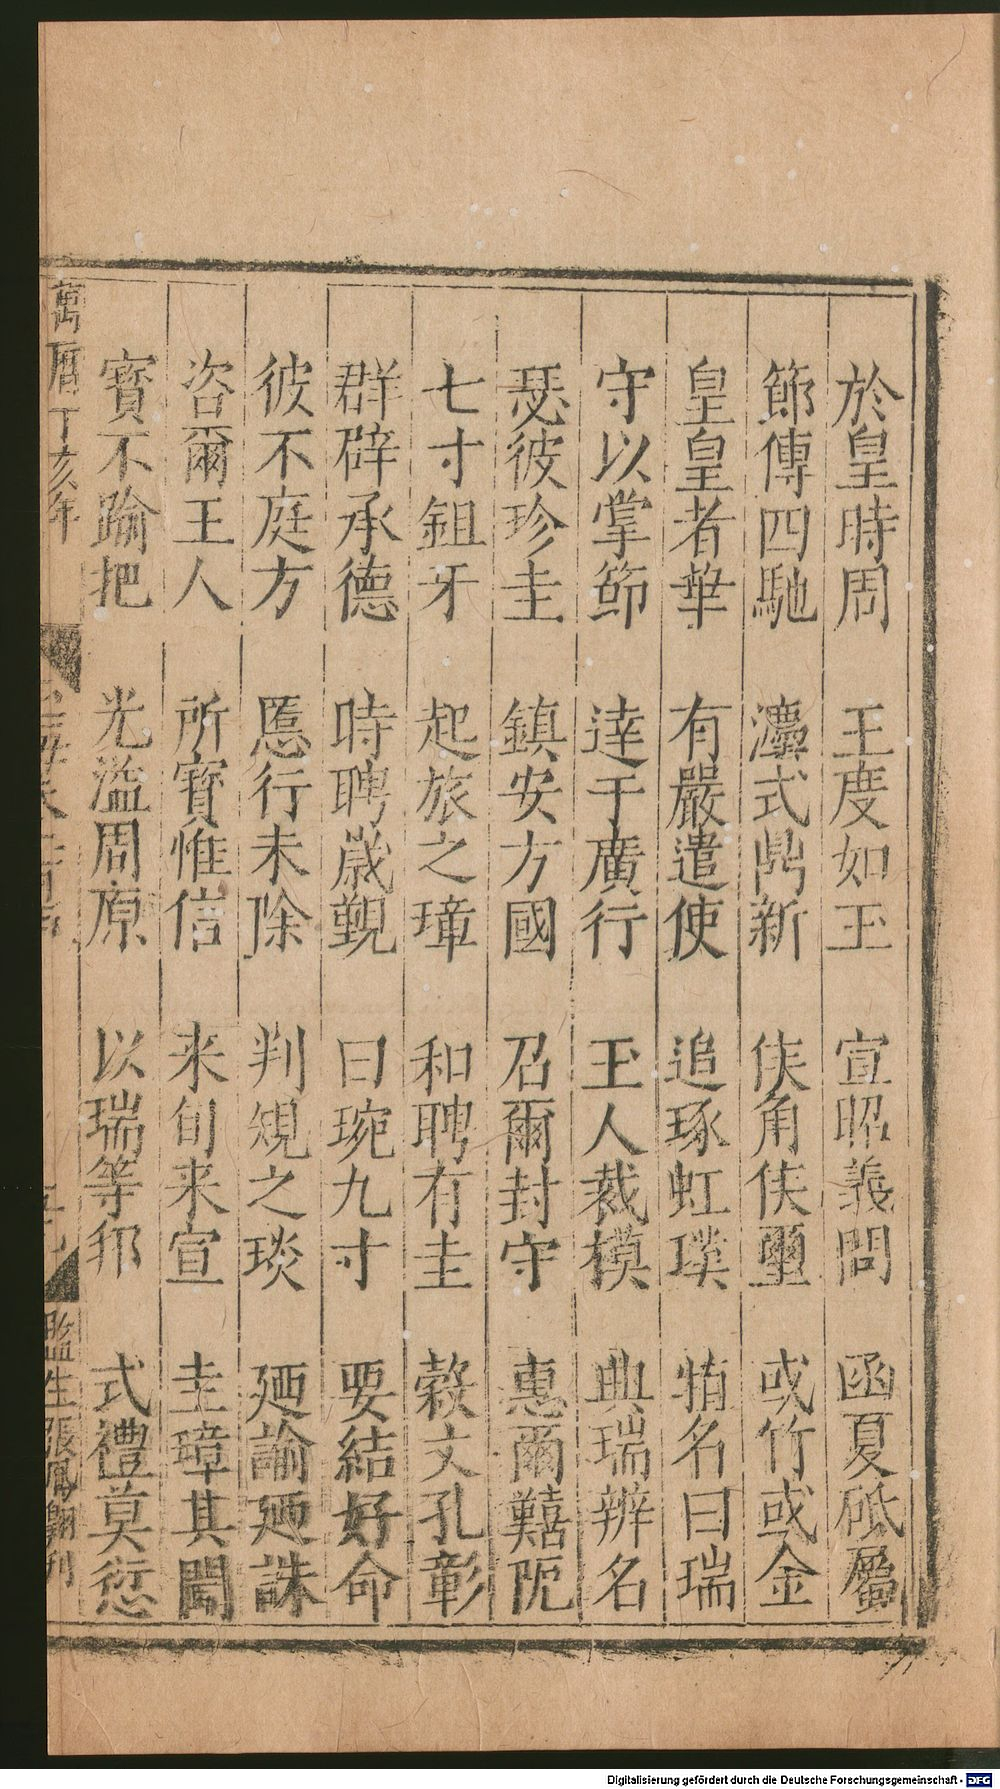 於皇時周 王度如玉 宣昭義問 函夏砥屬
節傳四馳 灋式鼎新 侇角侇璽 或竹或金
皇皇者華 有嚴遣使 追琢虹璞 揗名曰瑞
守以掌節 達于廣行 玉人裁模 典瑞辨名
瑟彼珍圭 鎮安方國 召爾封守 惠爾囏阨
七寸鉏牙 起旅之璋 和聘有圭 穀文孔彰
群辟承德 時聘歲覲 曰琬九寸 要結好命
彼不庭方 慝行未除 判規之琰 廼論廼誅
咨爾王人 所寶惟信 来旬来宣 圭璋其聞
寳不踰把 光溢周原 以瑞等邦 式禮莫愆
萬曆丁亥年
監生張鳳翶刊
Digitalisierung gefördert durch die Deutsche Forschungsgemeinschaft - DFG